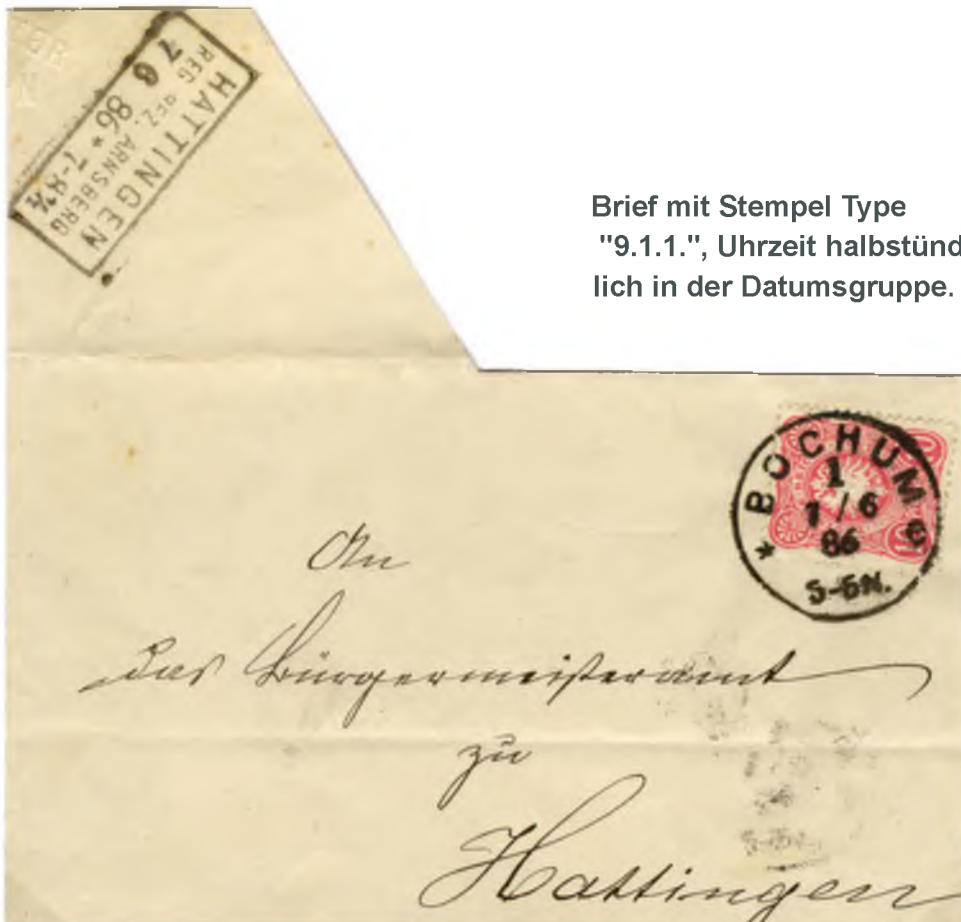 HATTINGEN
REG. BEZ. ARNSBERG
7 6 86 *
Brief mit Stempel Type
"9.1.1.", Uhrzeit halbstünd
lich in der Datumsgruppe.
* BOCHUM
1
7/6
86
5-6N.
An
das Bürgermeisteramt
zu
Hattingen